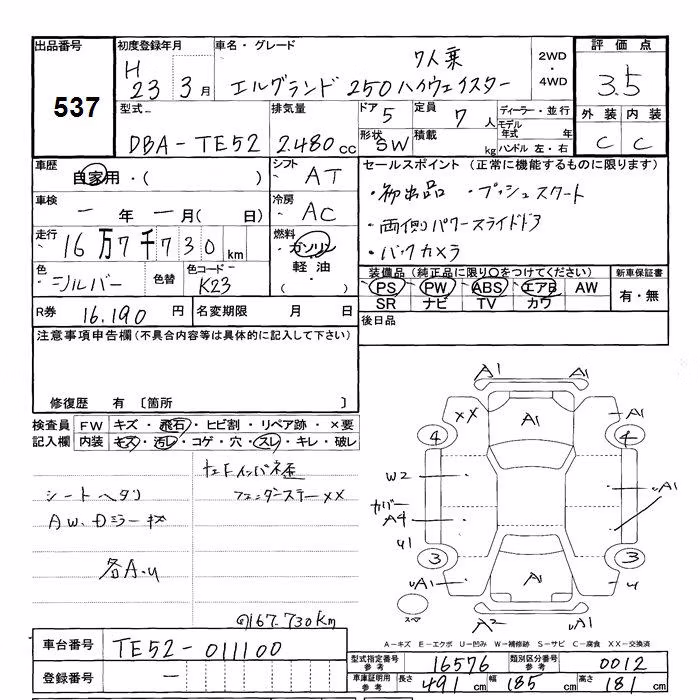 出品番号
537
初度登録年月
H 23年 3月
車名・グレード
7人乗
エルグランド 250 ハイウェイスター
2WD
・
4WD
評価点
3.5
外装 内装
C C
型式
DBA-TE52
排気量
2.480 cc
ドア 5
形状 SW
定員 7 人
積載 kg
ディーラー・並行
モデル年式 年
ハンドル 左・右
車歴
自家用・( )
シフト
AT
車検
一 年 一 月( 日)
冷房
AC
走行
16万7千730 km
燃料
ガソリン
軽油
( ・ )
色
シルバー
色替
色コード
K23
セールスポイント (正常に機能するものに限ります)
・初出品 ・プッシュスタート
・両側パワースライドドア
・バックカメラ
装備品(純正品に限り〇をつけてください)
PS PW ABS エアB AW
SR ナビ TV カワ
新車保証書
有・無
R券 16.190 円
名変期限 月 日
後日品
注意事項申告欄(不具合内容等は具体的に記入して下さい)
修復歴 有 〔箇所 〕
検査員記入欄
FW キズ・飛石・ヒビ割・リペア跡・×要
内装 キズ・汚レ・コゲ・穴・スレ・キレ・破レ
シートヘタリ
AW、Dミラーキズ
各A.U
フェンダーステー××
167.730km
A1 A1
×× A1 A1
4 4
W2
カバー
A4
UA1
U1
3 3
UA1 A1 U
スペア
A2 UA1
A-キズ E-エクボ U-凹み W-補修跡 S-サビ C-腐食 XX-交換済
車台番号 TE52-011100
登録番号 -
型式指定番号 参考 16576
類別区分番号 参考 0012
車庫証明用 参考 長さ 491 cm 幅 185 cm 高さ 181 cm